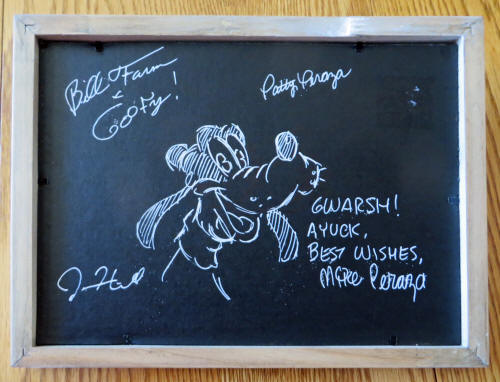 Bill Farmer
&
Goofy!
Patty Peraza
GWARSH!
AYUCK,
BEST WISHES,
MIKE Peraza